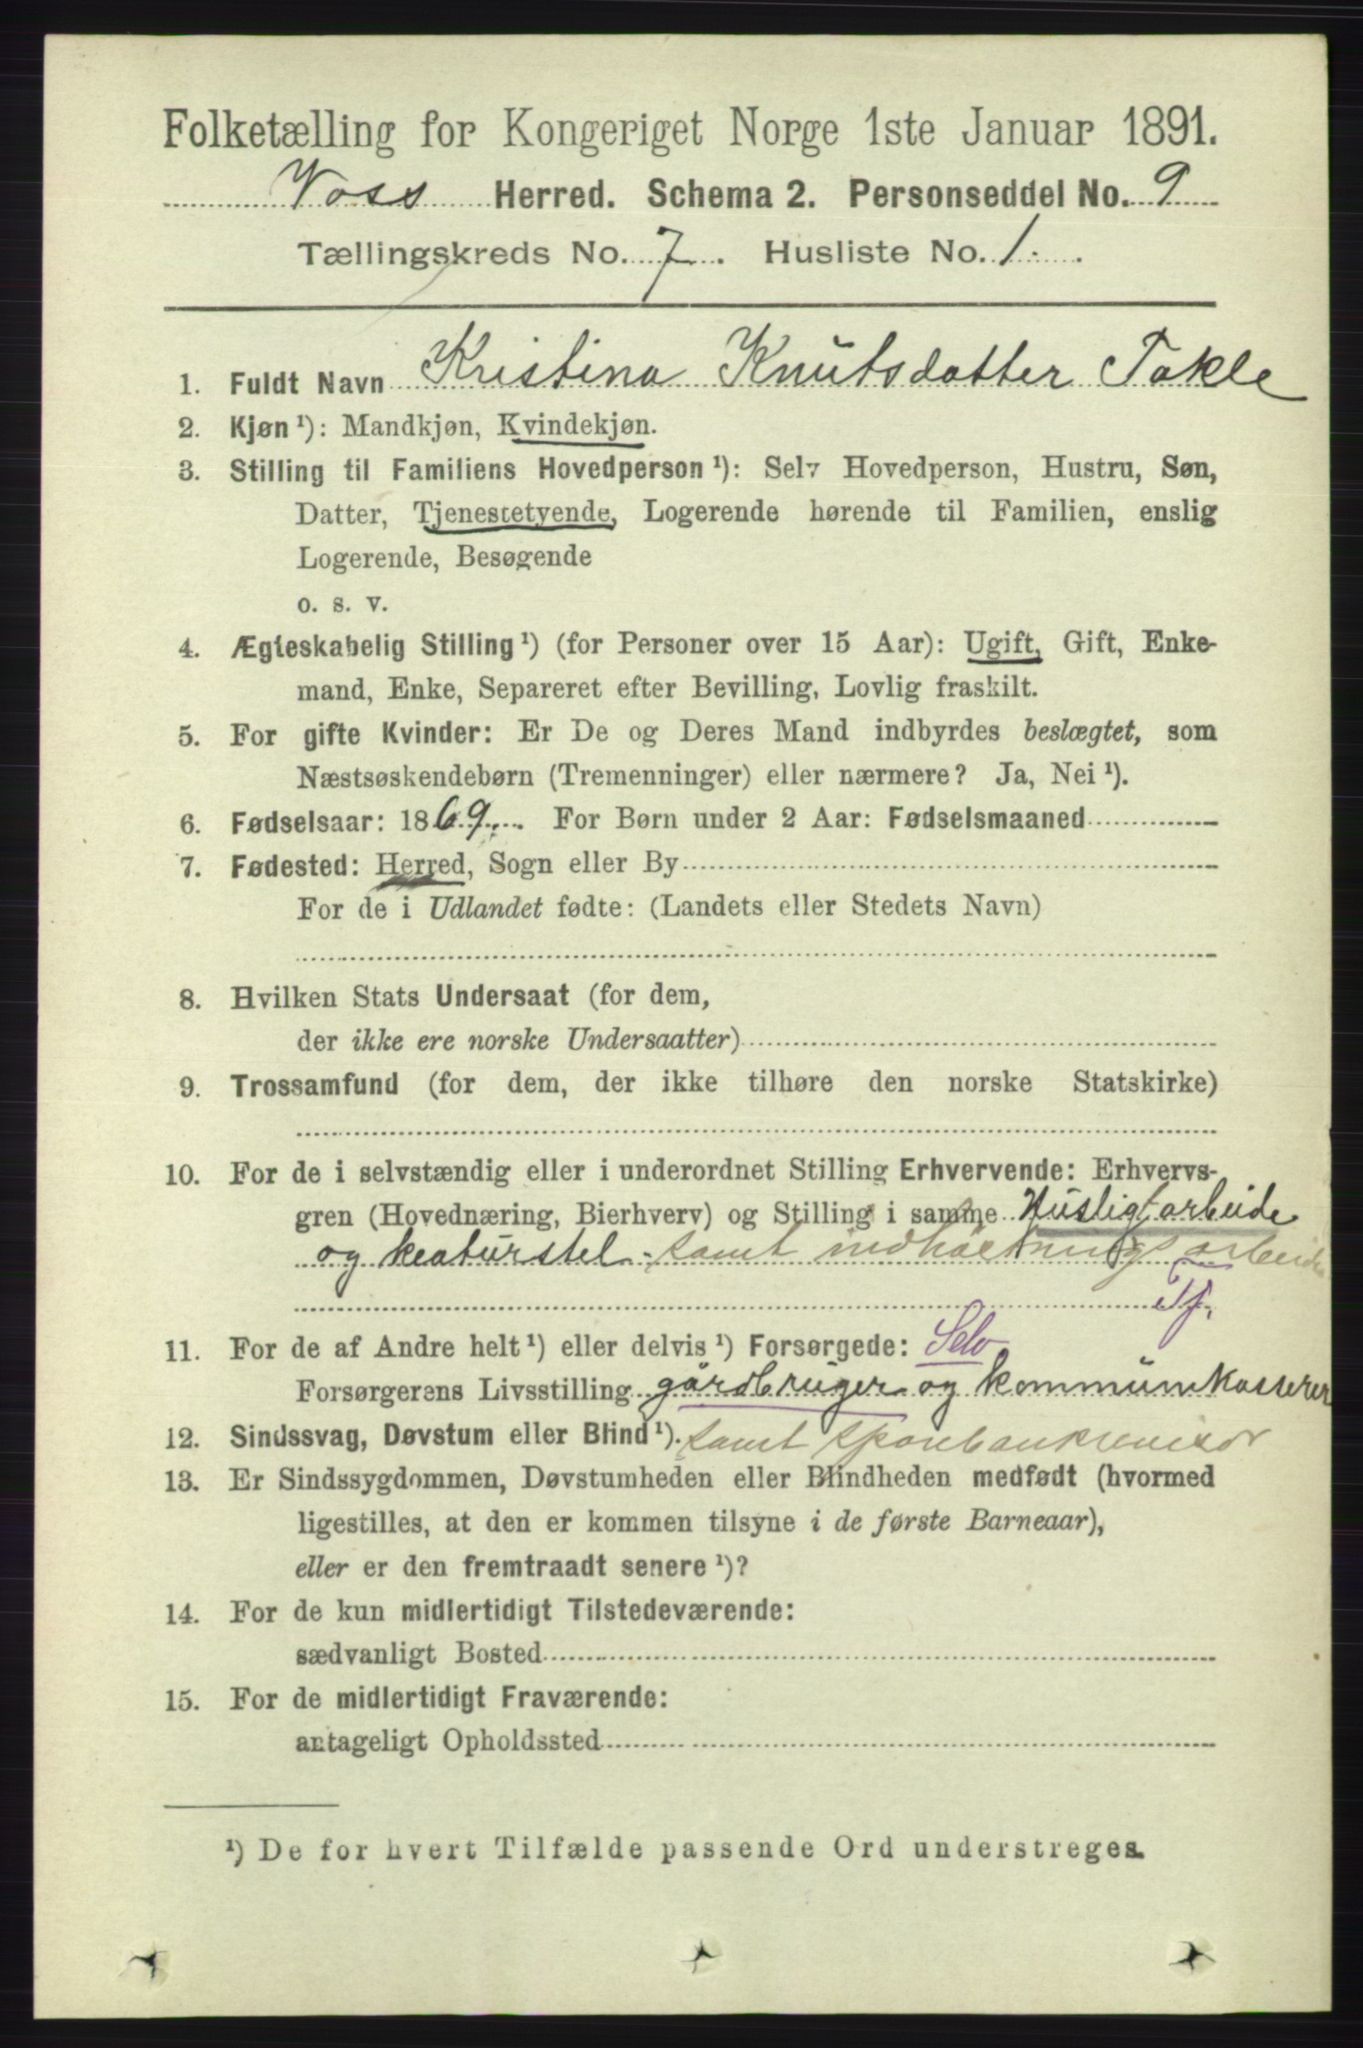 Folketælling for Kongeriget Norge 1ste Januar 1891.
Voss Herred. Schema 2. Personseddel No. 9
Tællingskreds No. 7. Husliste No. 1.
1. Fuldt Navn Kristina Knutsdatter Takle
2. Kjøn ¹): Mandkjøn, Kvindekjøn.
3. Stilling til Familiens Hovedperson ¹): Selv Hovedperson, Hustru, Søn,
Datter, Tjenestetyende, Logerende hørende til Familien, enslig
Logerende, Besøgende
o. s. v.
4. Ægteskabelig Stilling ¹) (for Personer over 15 Aar): Ugift, Gift, Enke-
mand, Enke, Separeret efter Bevilling, Lovlig fraskilt.
5. For gifte Kvinder: Er De og Deres Mand indbyrdes beslægtet, som
Næstsøskendebørn (Tremenninger) eller nærmere? Ja, Nei ¹).
6. Fødselsaar: 1869. For Børn under 2 Aar: Fødselsmaaned
7. Fødested: Herred, Sogn eller By
For de i Udlandet fødte: (Landets eller Stedets Navn)
8. Hvilken Stats Undersaat (for dem,
der ikke ere norske Undersaatter)
9. Trossamfund (for dem, der ikke tilhøre den norske Statskirke)
10. For de i selvstændig eller i underordnet Stilling Erhvervende: Erhvervs-
gren (Hovednæring, Bierhverv) og Stilling i samme Husligt arbeide
og kreaturstel - samt indhøstnings arbeide
Tj.
11. For de af Andre helt ¹) eller delvis ¹) Forsørgede: Selv
Forsørgerens Livsstilling gårdbruger og kommunkasserer
12. Sindssvag, Døvstum eller Blind ¹). samt sparebankrevisor
13. Er Sindssygdommen, Døvstumheden eller Blindheden medfødt (hvormed
ligestilles, at den er kommen tilsyne i de første Barneaar),
eller er den fremtraadt senere ¹)?
14. For de kun midlertidigt Tilstedeværende:
sædvanligt Bosted
15. For de midlertidigt Fraværende:
antageligt Opholdssted
¹) De for hvert Tilfælde passende Ord understreges.